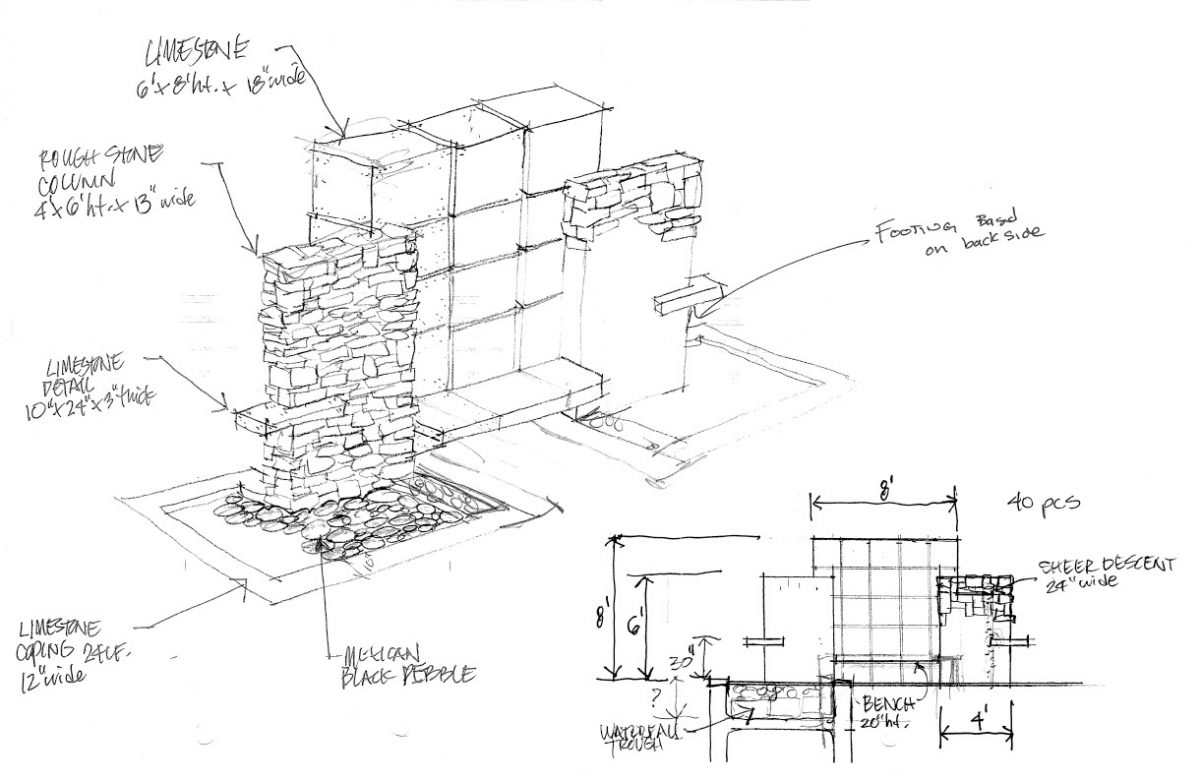 LIMESTONE
6' x 8' ht. x 18" wide
ROUGH STONE
COLUMN
4' x 6' ht. x 13" wide
LIMESTONE
DETAIL
10" x 24" x 3" thick
LIMESTONE
COPING 24LF.
12" wide
MEXICAN
BLACK PEBBLE
FOOTING Based
on back side
8'
40 pcs
SHEER DESCENT
24" wide
8'
6'
30"
?
WATERFALL
TROUGH
BENCH
20" ht.
4'